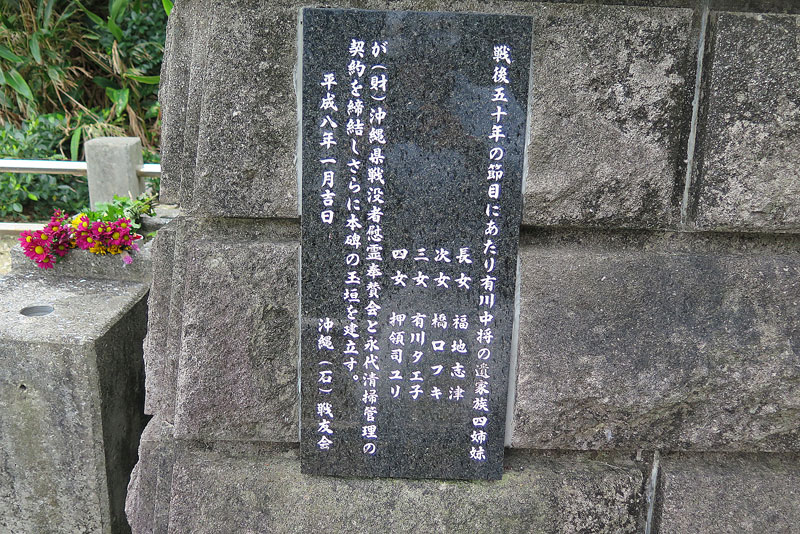 戦後五十年の節目にあたり有川中将の遺家族四姉妹
長女 福地志津
次女 橋口フキ
三女 有川タエ子
四女 押領司ユリ
が(財)沖縄県戦没者慰霊奉賛会と永代清掃管理の
契約を締結しさらに本碑の玉垣を建立す。
平成八年一月吉日 沖縄(石)戦友会